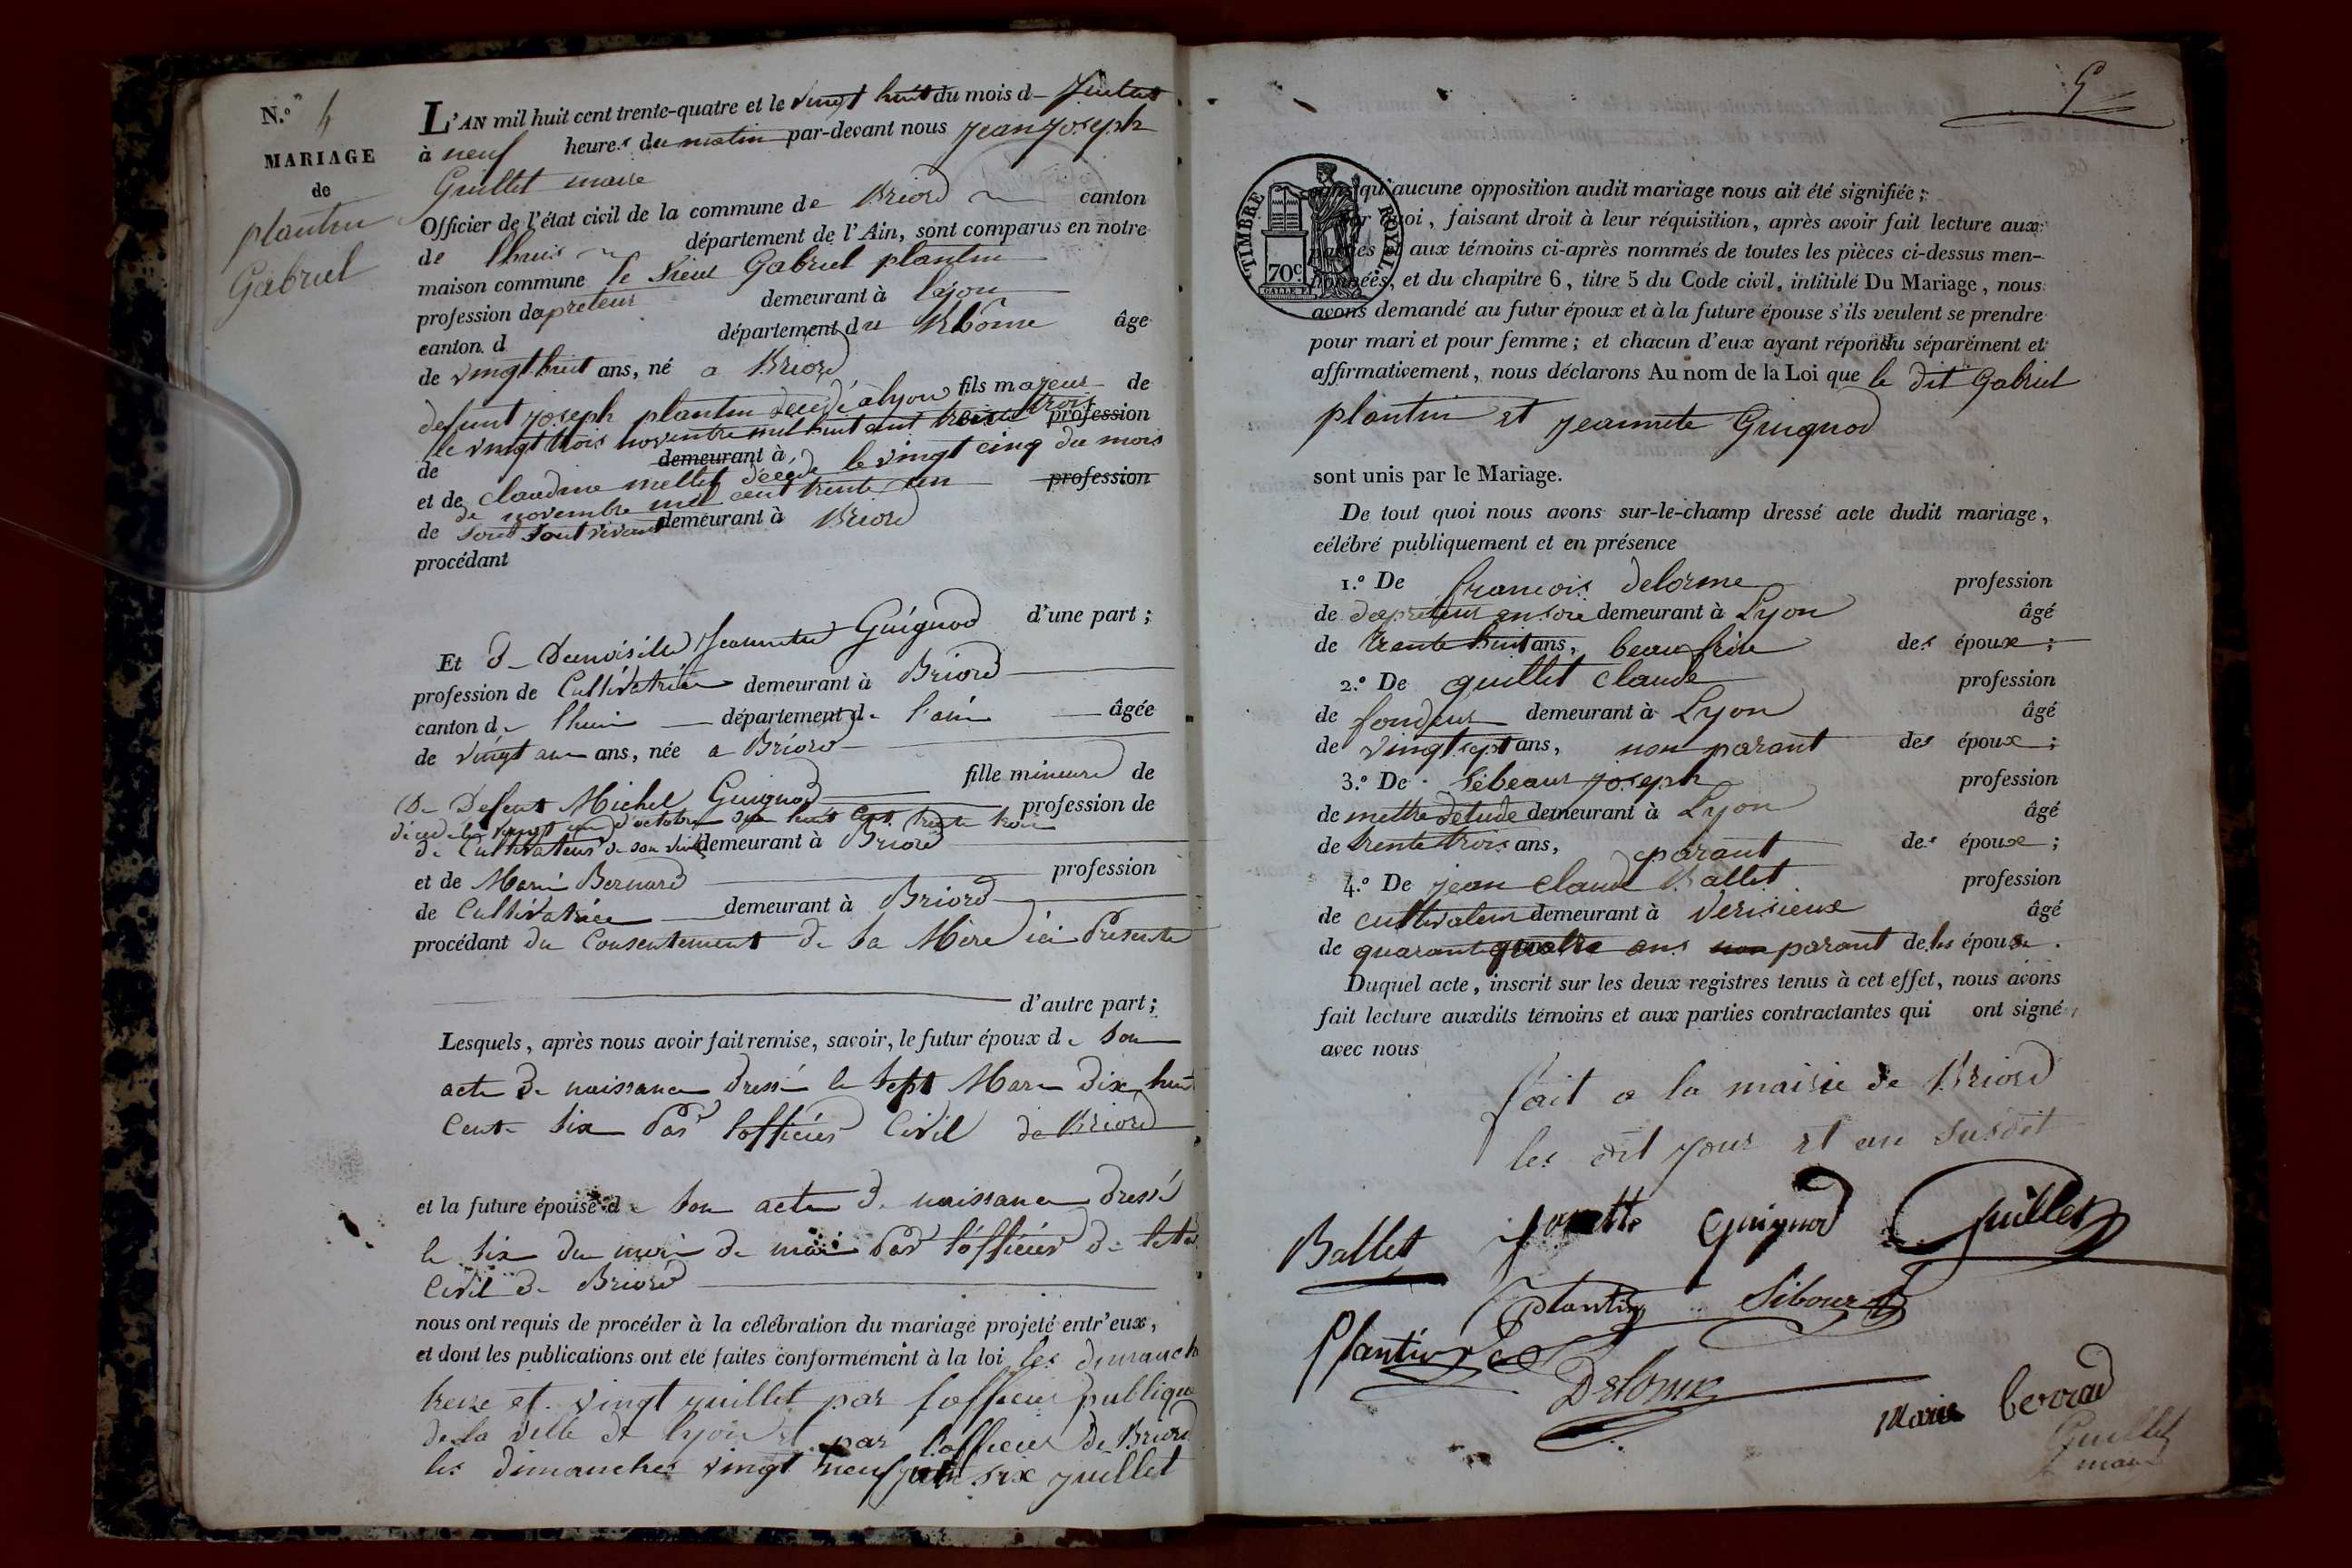 N.º 4
MARIAGE
de
plantin
Gabriel
L'AN mil huit cent trente-quatre et le vingt huit du mois d Juillet
à neuf heures du matin par-devant nous jean joseph
Guillet maire
Officier de l'état civil de la commune de Briord canton
de lhuis département de l'Ain, sont comparus en notre
maison commune le Sieur Gabriel plantin
profession d'apreteur demeurant à lyon
canton d département du Rhône âge
de vingt huit ans, né a Briord
fils majeur de
defunt joseph plantin decedé a lyon
le vingt trois novembre mil huit cent trente trois profession
de demeurant à
et de claudine mellet décédé le vingt cinq du mois
de novembre mil cent trente un profession
de demeurant à Briord
procédant
d'une part ;
Et d Demoiselle Jeannette Guignod
profession de Cultivatrice demeurant à Briord
canton de lhuis département de l'ain âgée
de vingt un ans, née a Briord
fille mineure de
De Defunt Michel Guignod profession de
décedé le vingt un d'octobre huit cent trente trois
de Cultivateur de son vivant demeurant à Briord
et de Marie Bernard profession
de Cultivatrice demeurant à Briord
procédant du Consentement de sa Mere ici Presente
d'autre part ;
Lesquels, après nous avoir fait remise, savoir, le futur époux de son
acte de naissance dressé le sept Mars dix huit
Cent Six Par l'officier Civil de Briord
et la future épouse de son acte de naissance dressé
le six du mois de mai Par l'officier de letat
Civil de Briord
nous ont requis de procéder à la célébration du mariage projeté entr'eux,
et dont les publications ont été faites conformément à la loi les dimanch
treize et vingt juillet par l'officier publique
de la ville de lyon et par l'officier de Briord
les dimanches vingt neuf juin six juillet
5
TIMBRE ROYAL
70c
qu'aucune opposition audit mariage nous ait été signifiée ;
quoi, faisant droit à leur réquisition, après avoir fait lecture aux
parties et aux témoins ci-après nommés de toutes les pièces ci-dessus men-
tionnées, et du chapitre 6, titre 5 du Code civil, intitulé Du Mariage, nous
avons demandé au futur époux et à la future épouse s'ils veulent se prendre
pour mari et pour femme ; et chacun d'eux ayant répondu séparément et
affirmativement, nous déclarons Au nom de la Loi que le dit Gabriel
plantin et jeannete Guignod
sont unis par le Mariage.
De tout quoi nous avons sur-le-champ dressé acte dudit mariage,
célébré publiquement et en présence
1.º De francois delorme profession
de dapreteur en soie demeurant à Lyon âgé
de trente huit ans, beau frere des époux ;
2.º De guillet claude profession
de fondeur demeurant à Lyon âgé
de vingt sept ans, non parant des époux ;
3.º De Sebeaur joseph profession
de mettre detude demeurant à Lyon âgé
de trente trois ans, parant des époux ;
4.º De jean claude Ballet profession
de cultivateur demeurant à Verisieux âgé
de quarante quatre ans non parant de les épouse.
Duquel acte, inscrit sur les deux registres tenus à cet effet, nous avons
fait lecture auxdits témoins et aux parties contractantes qui ont signé
avec nous
fait a la mairie de Briord
les dit jour et an susdit
Ballet Guignod Guillet
plantin Sibour
Plantin
Delorme
Marie berrad
Guillet
maire